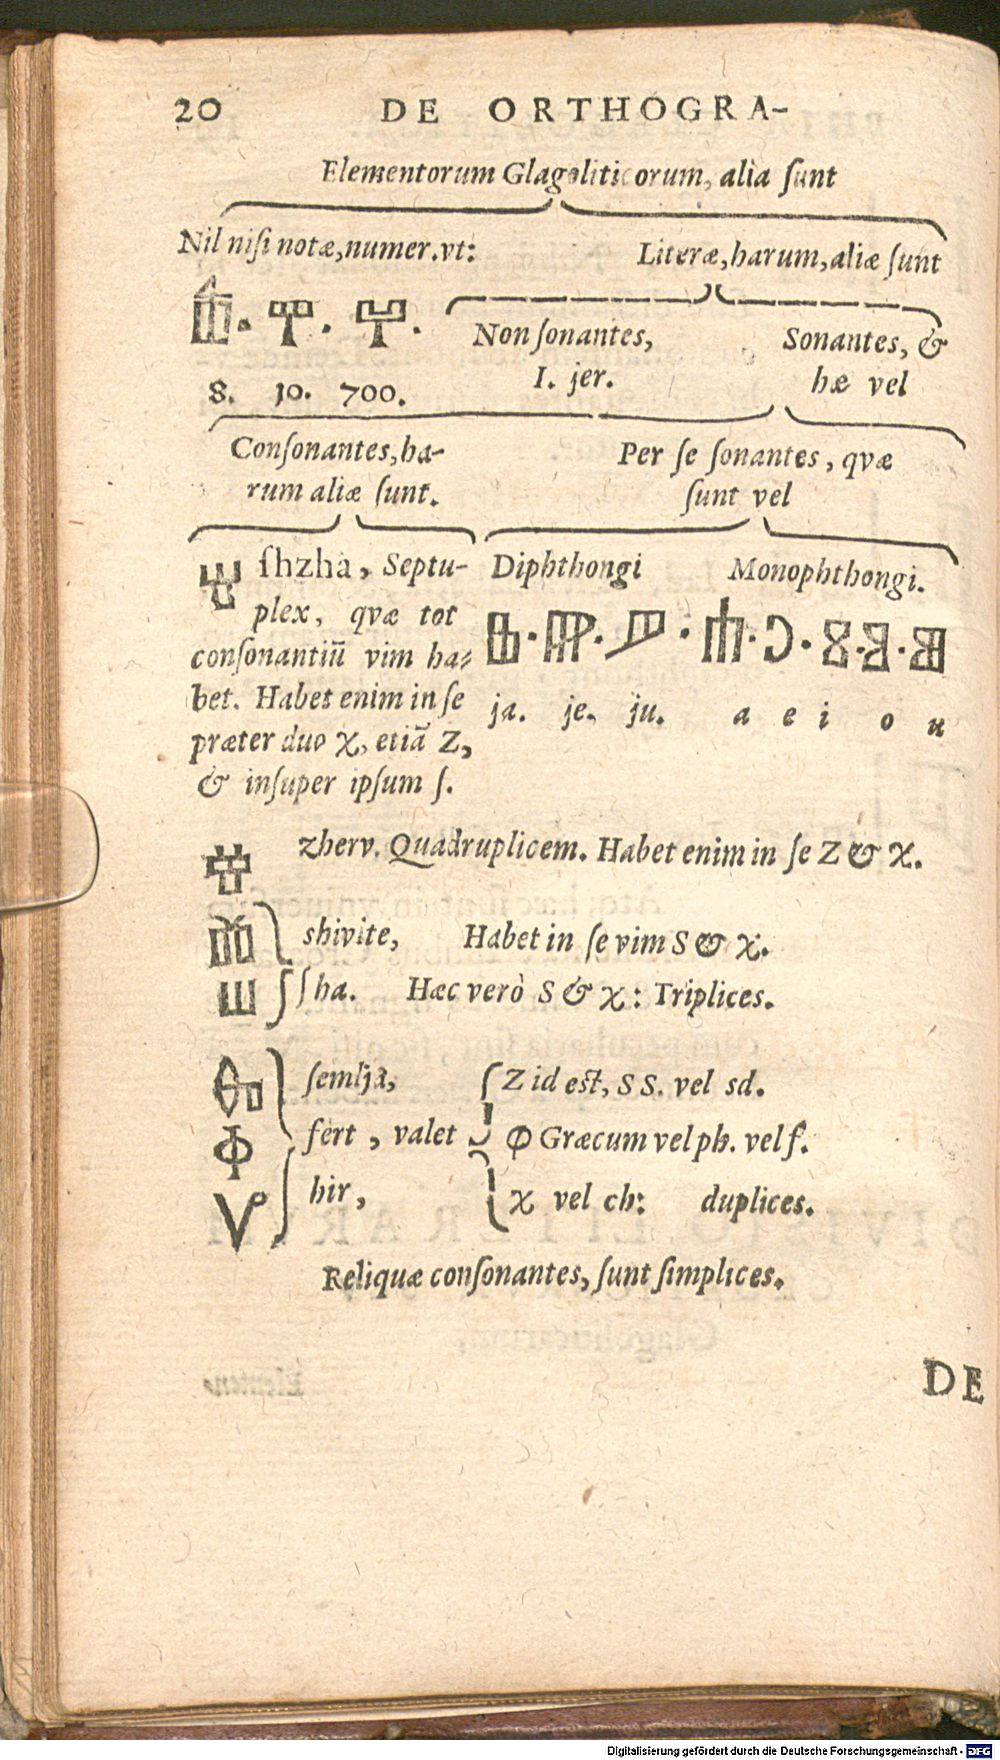 20 DE ORTHOGRA-
Elementorum Glagoliticorum, alia ſunt
Nil niſi notæ, numer. vt:
Literæ, harum, aliæ ſunt
Ⰶ. Ⱅ. Ⱋ.
8. 10. 700.
Non ſonantes,
I. jer.
Sonantes, &
hæ vel
Conſonantes, ha-
rum aliæ ſunt.
Per ſe ſonantes, qvæ
ſunt vel
ſhzha, Septu-
plex, qvæ tot
conſonantiũ vim ha-
bet. Habet enim in ſe
præter duo χ, etiã Z,
& inſuper ipſum ſ.
Diphthongi
ja. je. ju.
Monophthongi.
a e i o u
zherv. Quadruplicem. Habet enim in ſe Z & χ.
shivite, Habet in ſe vim S & χ.
Ⱎ ſha. Hæc verò S & χ: Triplices.
ſemlja, Z id eſt, S S. vel sd.
Ⱇ fert, valet Φ Græcum vel ph. vel f.
hir, χ vel ch: duplices.
Reliquæ conſonantes, ſunt ſimplices.
DE
Digitalisierung gefördert durch die Deutsche Forschungsgemeinschaft - DFG